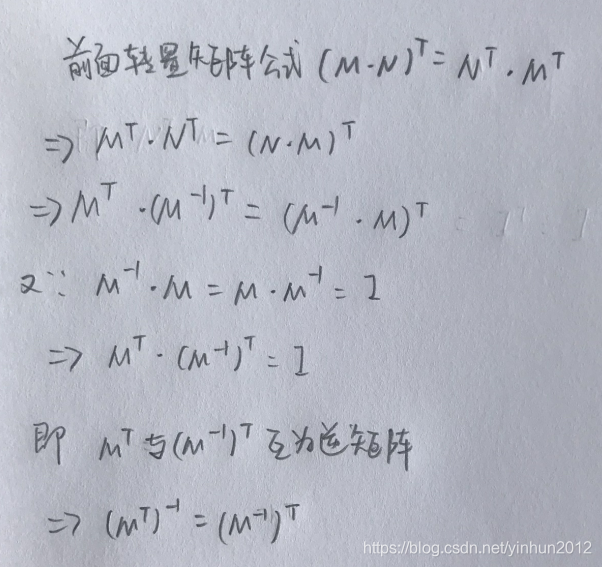 前面转置矩阵公式 (M·N)ᵀ = Nᵀ·Mᵀ
=> Mᵀ·Nᵀ = (N·M)ᵀ
=> Mᵀ·(M⁻¹)ᵀ = (M⁻¹·M)ᵀ
又∵ M⁻¹·M = M·M⁻¹ = I
=> Mᵀ·(M⁻¹)ᵀ = I
即 Mᵀ与(M⁻¹)ᵀ 互为逆矩阵
=> (Mᵀ)⁻¹ = (M⁻¹)ᵀ
https://blog.csdn.net/yinhun2012